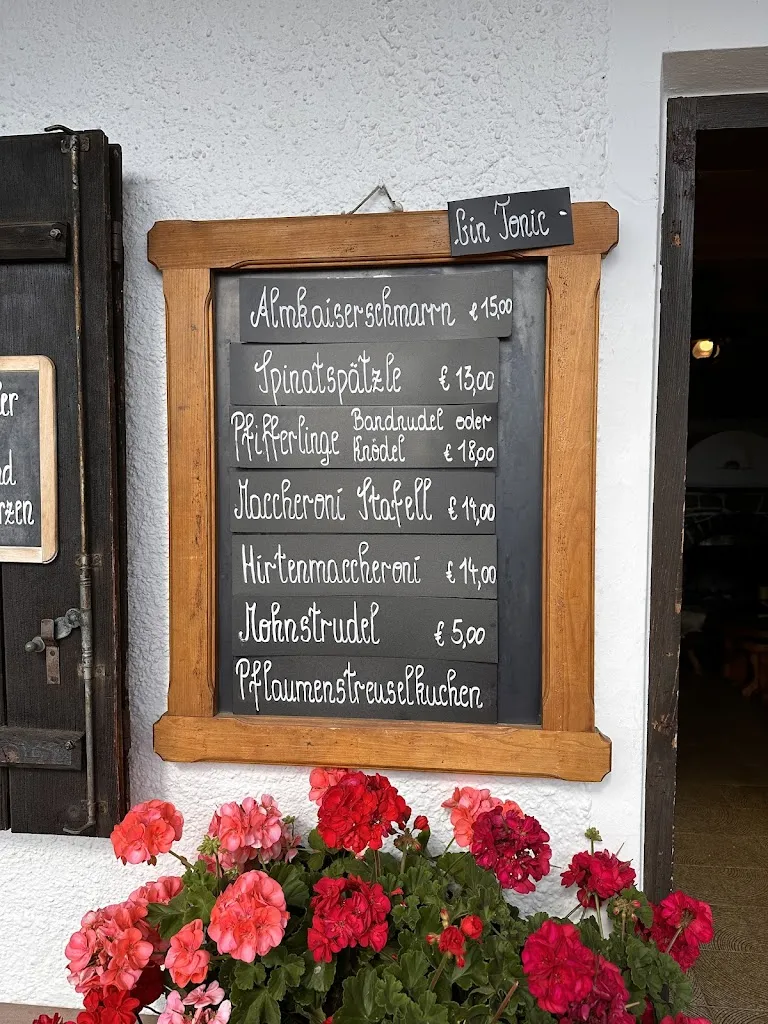 Gin Tonic
Almkaiserschmarrn € 15,00
Spinatspätzle € 13,00
Pfifferlinge Bandnudel oder
Knödel € 18,00
Maccheroni Stafell € 14,00
Hirtenmaccheroni € 14,00
Mohnstrudel € 5,00
Pflaumenstreuselkuchen